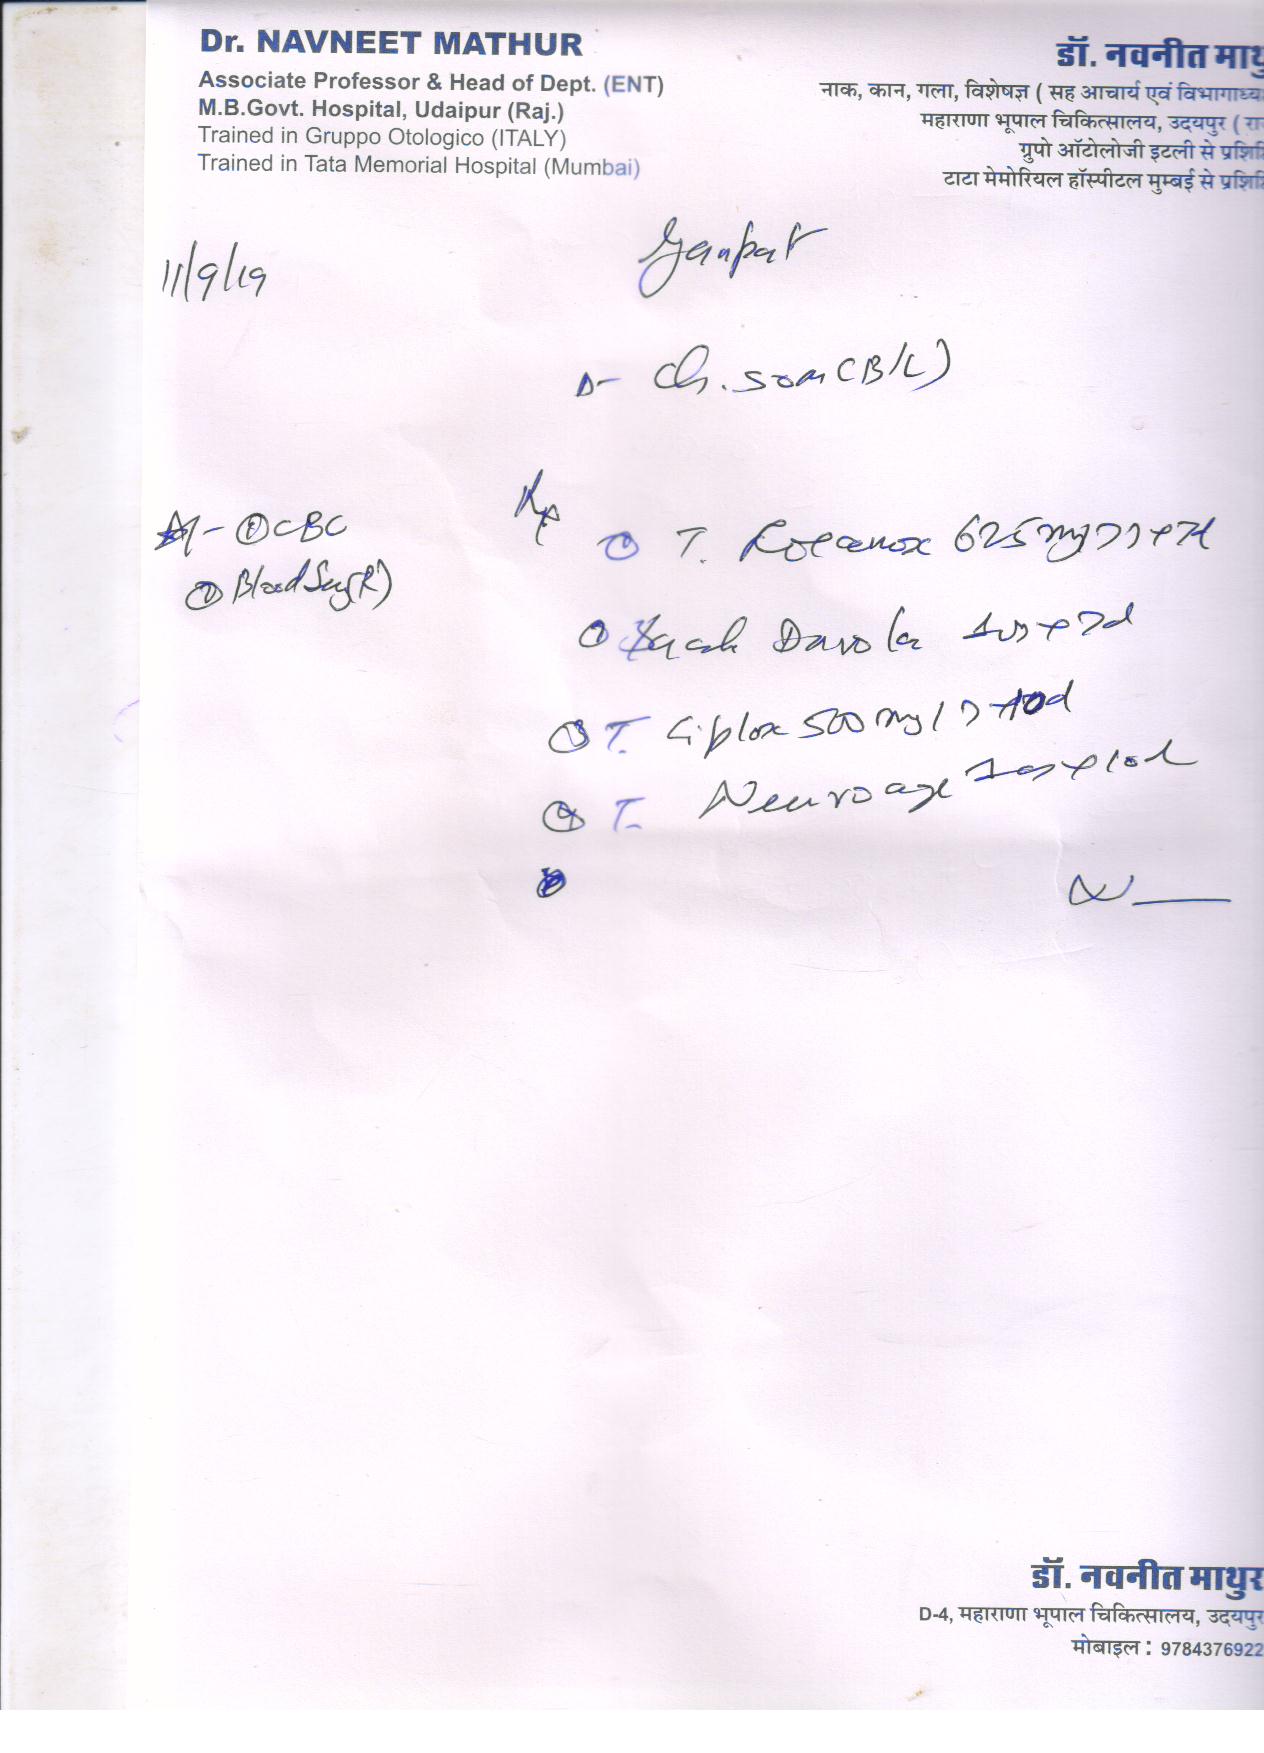 Dr. NAVNEET MATHUR
Associate Professor & Head of Dept. (ENT)
M.B.Govt. Hospital, Udaipur (Raj.)
Trained in Gruppo Otologico (ITALY)
Trained in Tata Memorial Hospital (Mumbai)
डॉ. नवनीत माथु
नाक, कान, गला, विशेषज्ञ ( सह आचार्य एवं विभागाध्य
महाराणा भूपाल चिकित्सालय, उदयपुर ( रा
ग्रुपो ऑटोलोजी इटली से प्रशि
टाटा मेमोरियल हॉस्पीटल मुम्बई से प्रशि
11/9/19
Ganpat
Δ- Ch. som (B/L)
① CBC
② Blood Sug(R)
Rx
① T. 625 mg
②
③ T. Ciplox 500 mg 1 10d
④ T. Neuroage
डॉ. नवनीत माथुर
D-4, महाराणा भूपाल चिकित्सालय, उदयपुर
मोबाइल : 9784376922